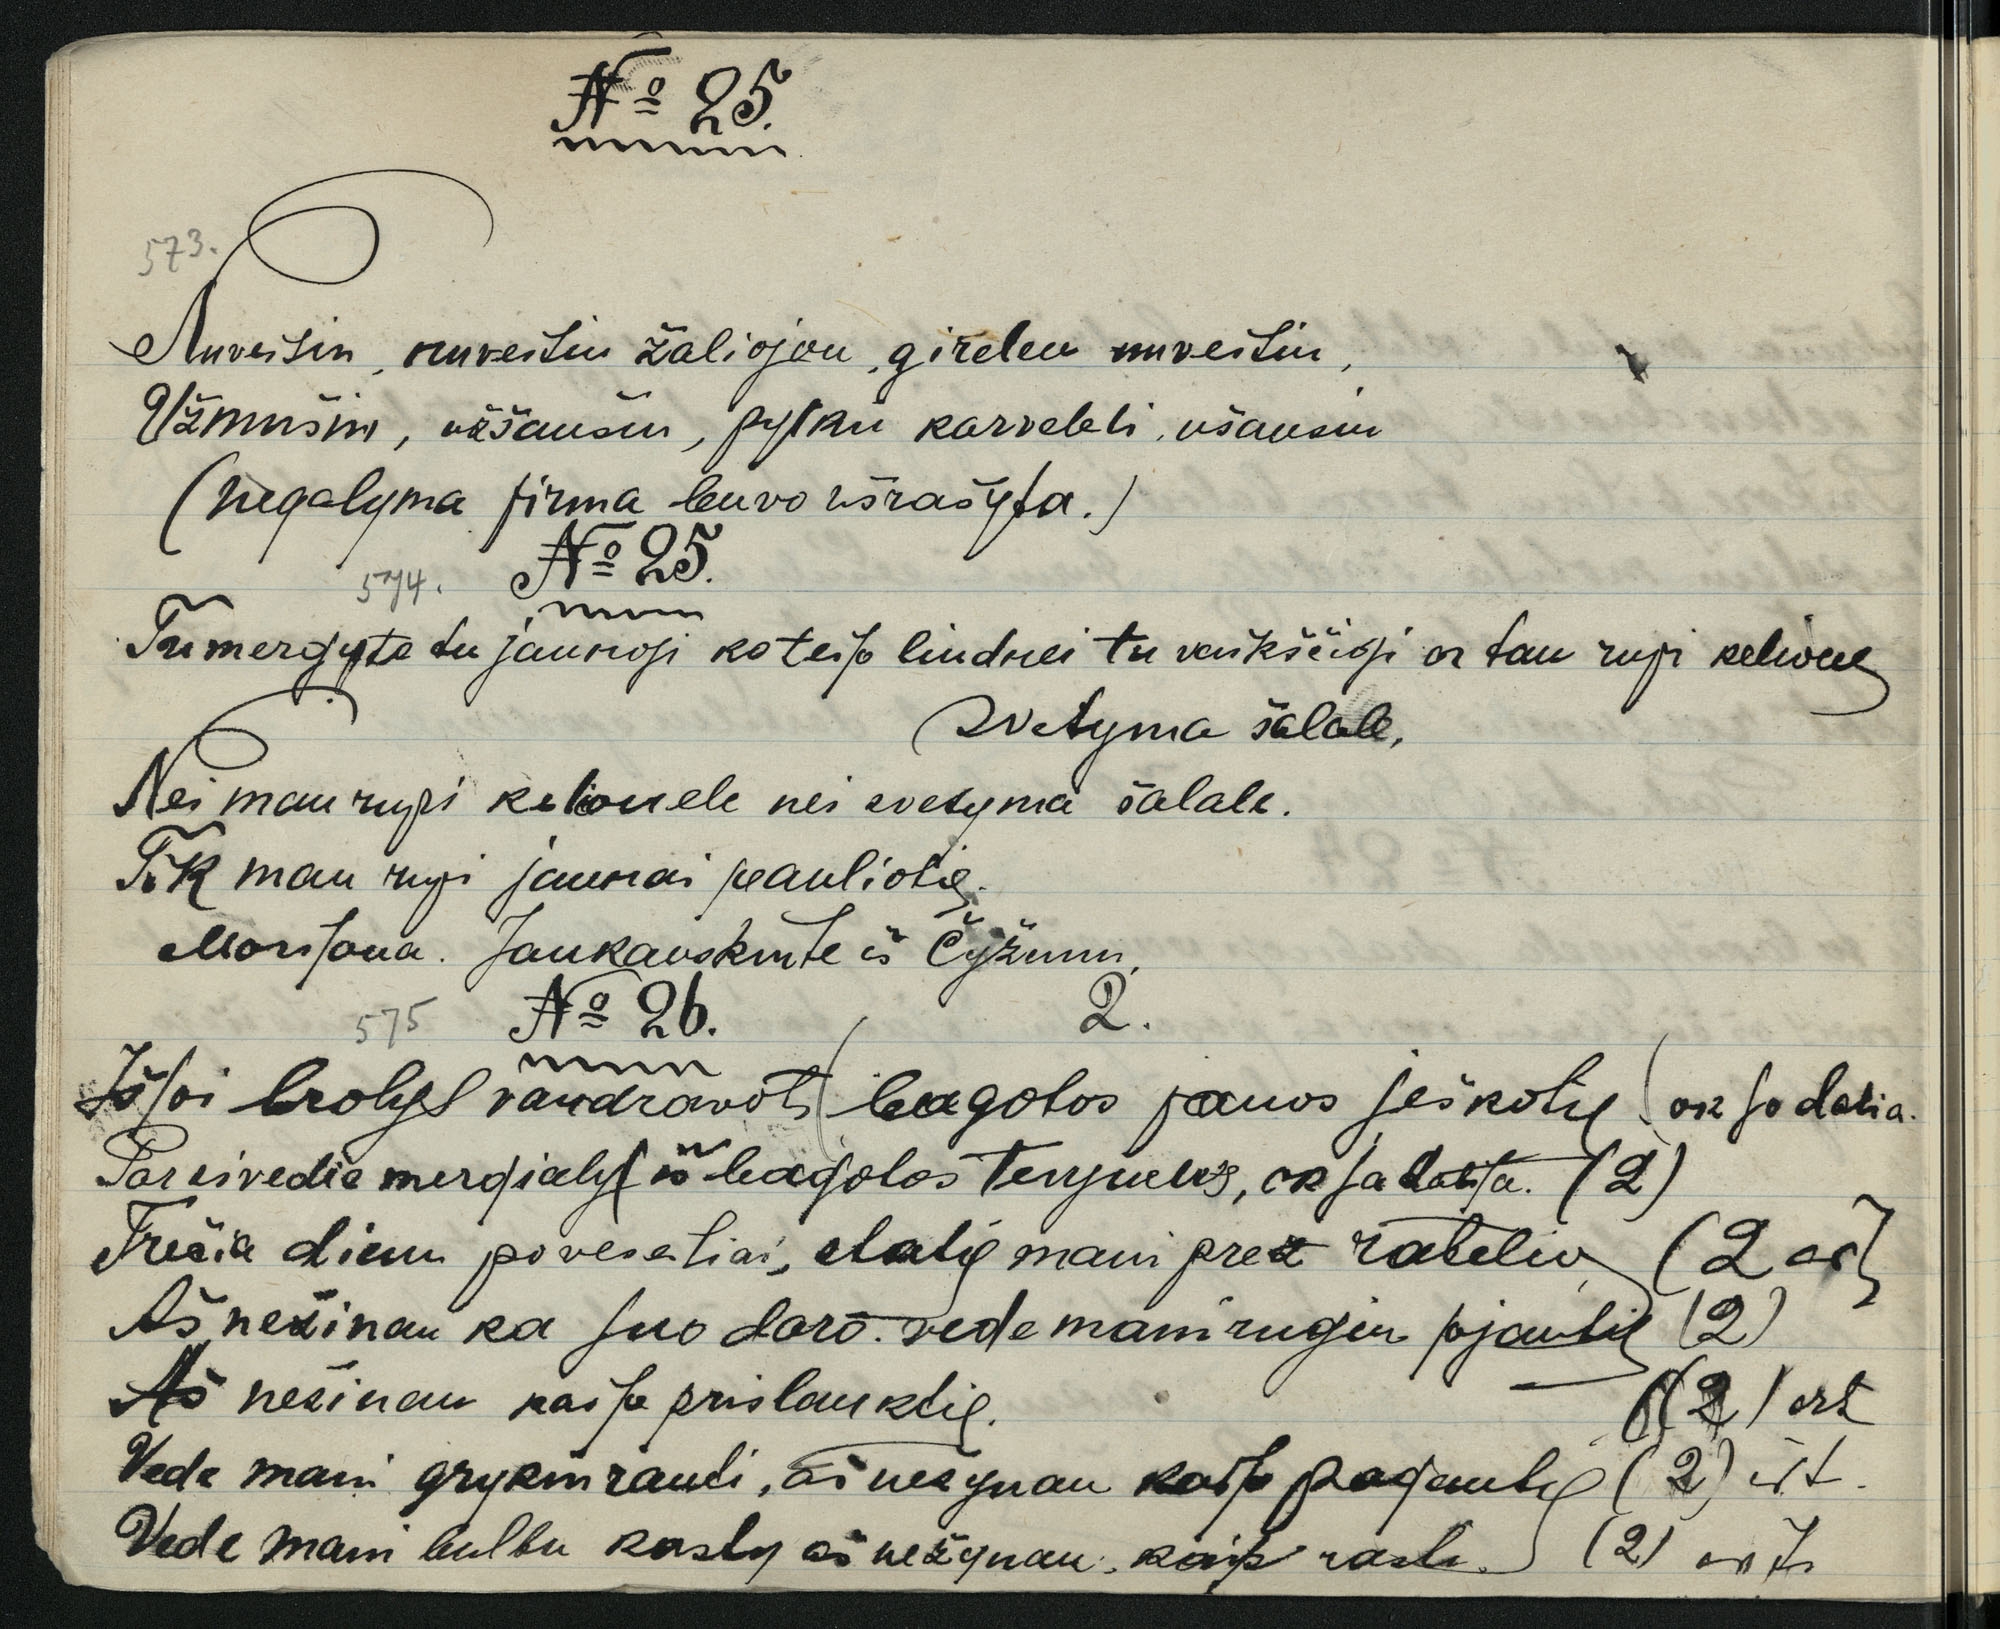 № 25.
573.
Nuveisin, nuveisin žaliojon, girelen nuveisin,
Užmušin, užšausin, pylku karveleli, ušausin
(negalyma pirma buvo užrašyta.)
№ 25.
574.
Tu mergyte tu jaunoji koteip liudnei tu vaikščioji ar tau rupi kelione
svetyma šalale,
Nei man rupi kelionele nei svetyma šalale.
Tik man rupi jaunai pauliotie.
Marijona. Jankauskinte iš Čyžunu.
575 № 26. 2.
Išjoi brolys vandravots bagotos panos ješkotie ok jo dalia.
Pareivedia mergialy iš bagotos Tenjueus, ok ja dalia. (2)
Trečia dienu po veseliai, stalie mani prez rateliu (2 or
Aš nežinau ka juo daro. vede mani rugiu pjautie (2)
Aš nežinau kaip prislauktie. (2) ort
Vede mani grykiu rauti, aš nežynau kaip pagautie (2) irt.
Vede mani bulbu kasty aš nežynau, kaip raste. (2)